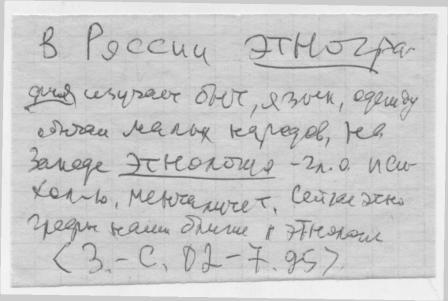 В России этногра-
фия изучает быт, язык, одежду
обычаи малых народов, на
Западе этнология - гл.о. пси-
хологию, менталитет. Сейчас этно
графы наши ближе к этнологии
<3.-С. 02-7.95>